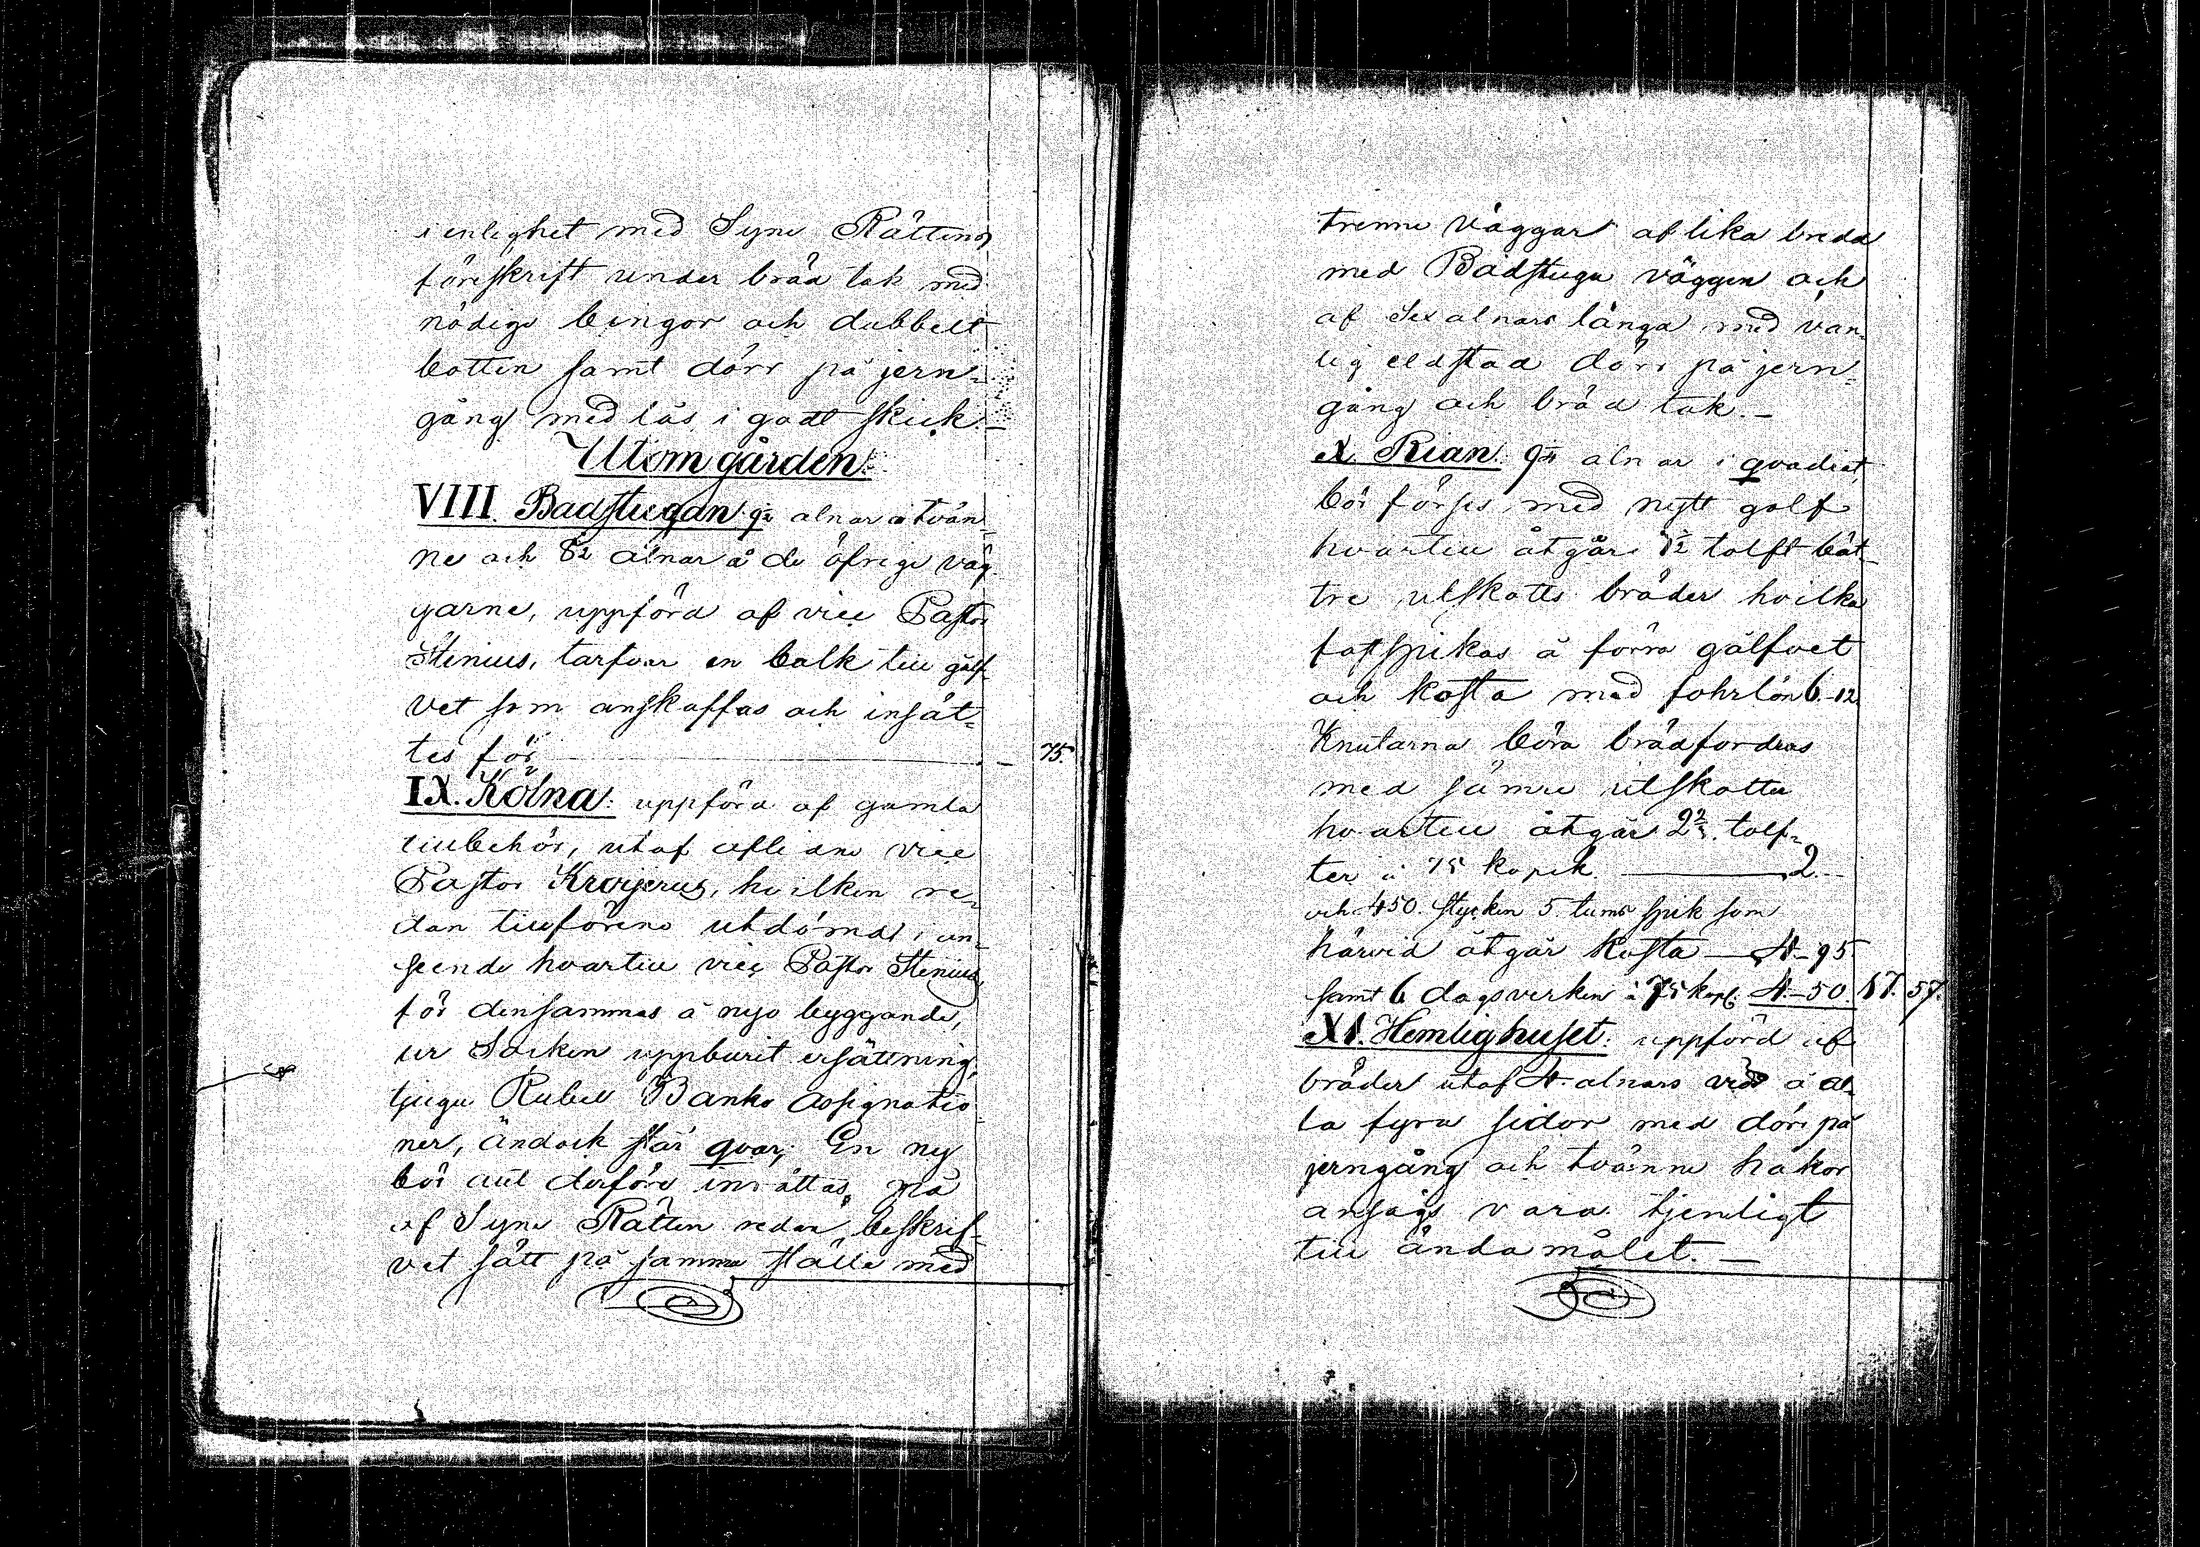 i enlighet med Syne Rättens
föreskrift under bräd tak med
nödige bingor och dubbelt
botten samt dörr på jern-
gång med lås i godt skick.
Utom gården:
VIII. Badstugan 9½ alnar a tvän-
ne och 8½ alnar å de öfrige väg-
garne, uppförd af vice Pastor
Stenius, tarfvar en balk till gålf-
vet som anskaffas och insät-
tes för — 75.
IX. Kölna: uppförd af gamla
tillbehör, utaf aflidne vice
Pastor Krogerus, hvilken re-
dan tillförene utdömd i an-
seende hvartill vice Pastor Stenius
för densammas å nyo byggande,
ur Socken uppburit ersättning,
tjugu Rubel Banko Assignatio-
ner, ändock står qvar; En ny
bör alt derföre inrättas på
af Syne Rätten redan beskrif-
vet sätt på samma ställe med
trenne väggar af lika bredd
med Badstugu väggen och
af Sex alnars långa med van-
lig eldstad dörr på jern-
gång och bräd tak.
X. Rian: 9½ alnar i qvadrat,
bör förses med nytt golf
hvartill åtgår 1½ tolft bät-
tre utskotts bräder hvilka
fastspikas å förra gålfvet
och kosta med fohrlön 6-12
Knutarna böra brädfordras
med sämre utskotter
hvartill åtgår 2⅔ tolf-
ter à 75 kopek — 2
och 450. stycken 5. tums spik som
härvid åtgår kosta — 4-95
samt 6 dagsverken à 75 kop. 4.-50. 17. 57.
XI. Hemlighuset: uppförd af
bräder utaf 4. alnars vidd å al-
la fyra sidor med dörr på
jerngång och tvänne hakor
ansågs vara tjenligt
till ändamålet.